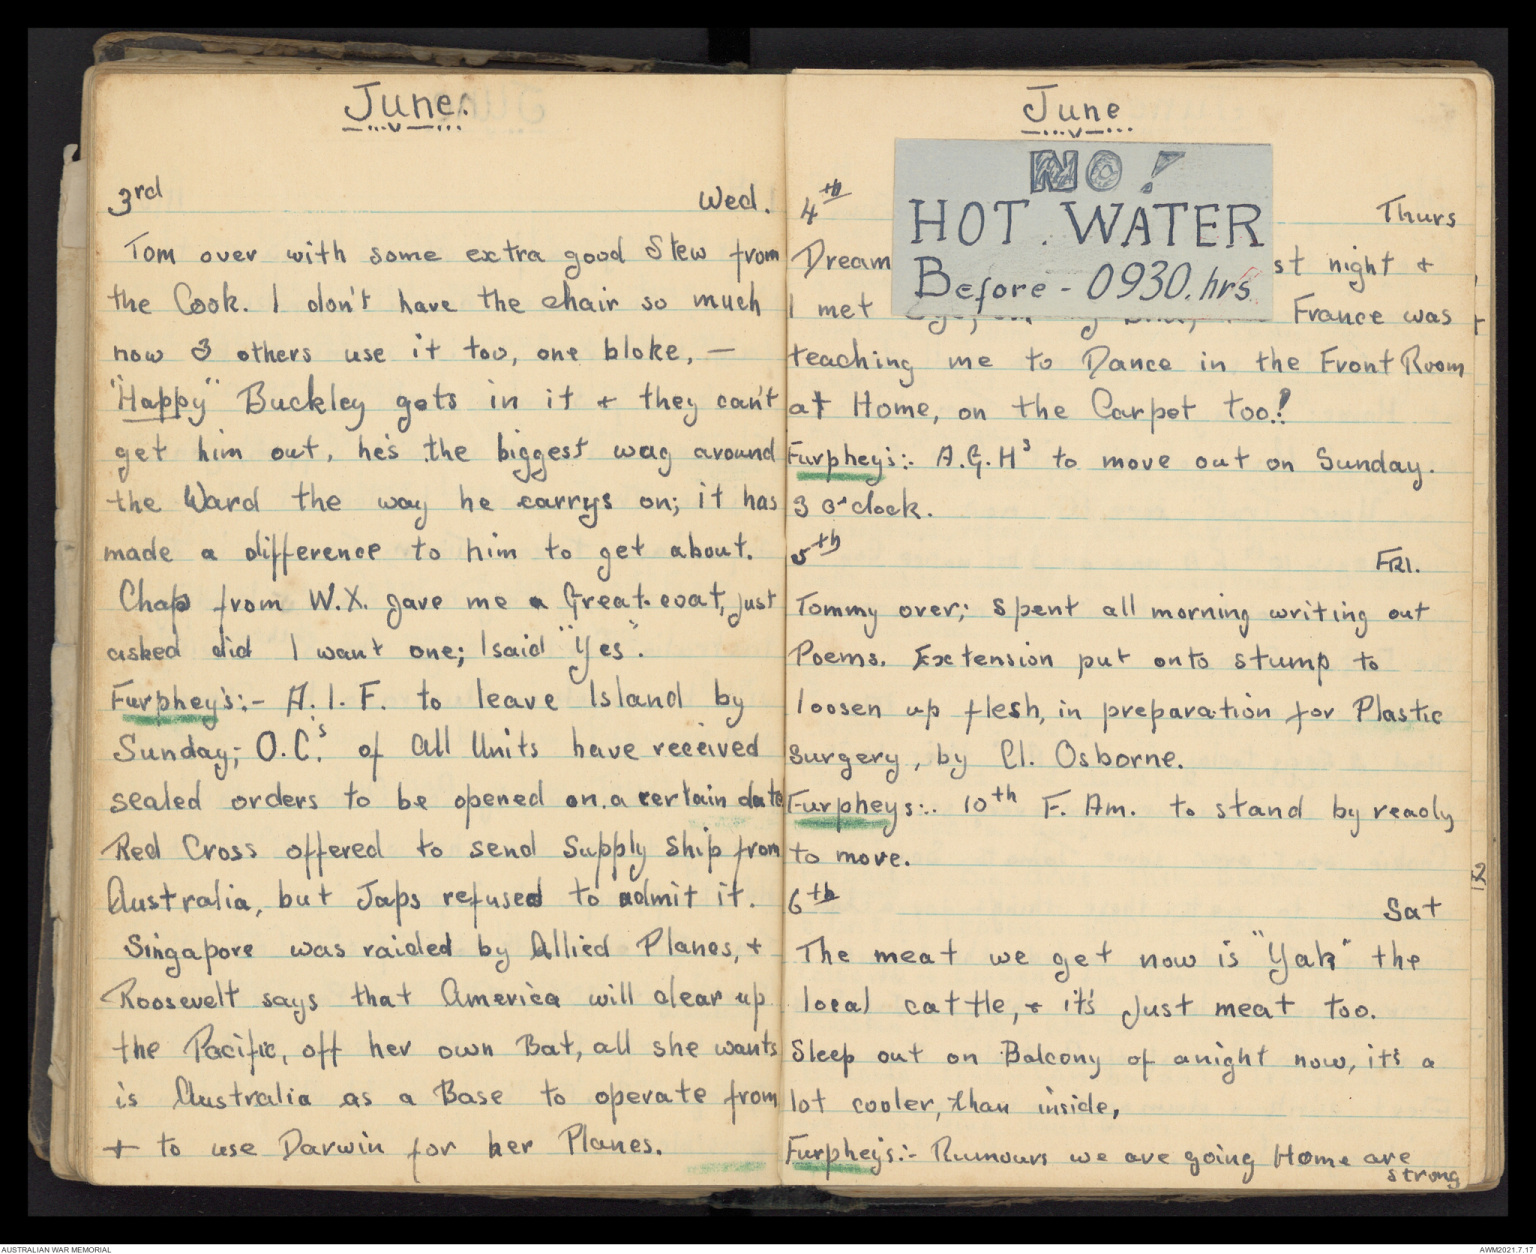 June.
3rd Wed.
Tom over with some extra good Stew from
the Cook. I don't have the chair so much
now 3 others use it too, one bloke, —
"Happy" Buckley gets in it + they can't
get him out, he's the biggest wag around
the Ward the way he carrys on; it has
made a difference to him to get about.
Chap from W.X. gave me a Great-coat, just
asked did I want one; I said "Yes".
Furphey's:- A.I.F. to leave Island by
Sunday; O.C.'s of all Units have received
sealed orders to be opened on a certain date
Red Cross offered to send Supply Ship from
Australia, but Japs refused to admit it.
Singapore was raided by Allied Planes, +
Roosevelt says that America will clear up
the Pacific, off her own Bat, all she wants
is Australia as a Base to operate from
+ to use Darwin for her Planes.
June
NO!
HOT WATER
Before - 0930.hrs
4th Thurs
Dream st night +
I met France was
teaching me to Dance in the Front Room
at Home, on the Carpet too!
Furphey's:- A.G.H³ to move out on Sunday.
3 o'clock.
5th FRI.
Tommy over; spent all morning writing out
Poems. Extension put onto stump to
loosen up flesh, in preparation for Plastic
surgery, by Cl. Osborne.
Furpheys:- 10th F. Am. to stand by ready
to move.
6th Sat
The meat we get now is "Yak" the
local cattle, + it's just meat too.
Sleep out on Balcony of anight now, it's a
lot cooler, than inside,
Furphey's:- Rumours we are going Home are
strong
AUSTRALIAN WAR MEMORIAL
AWM2021.7.17